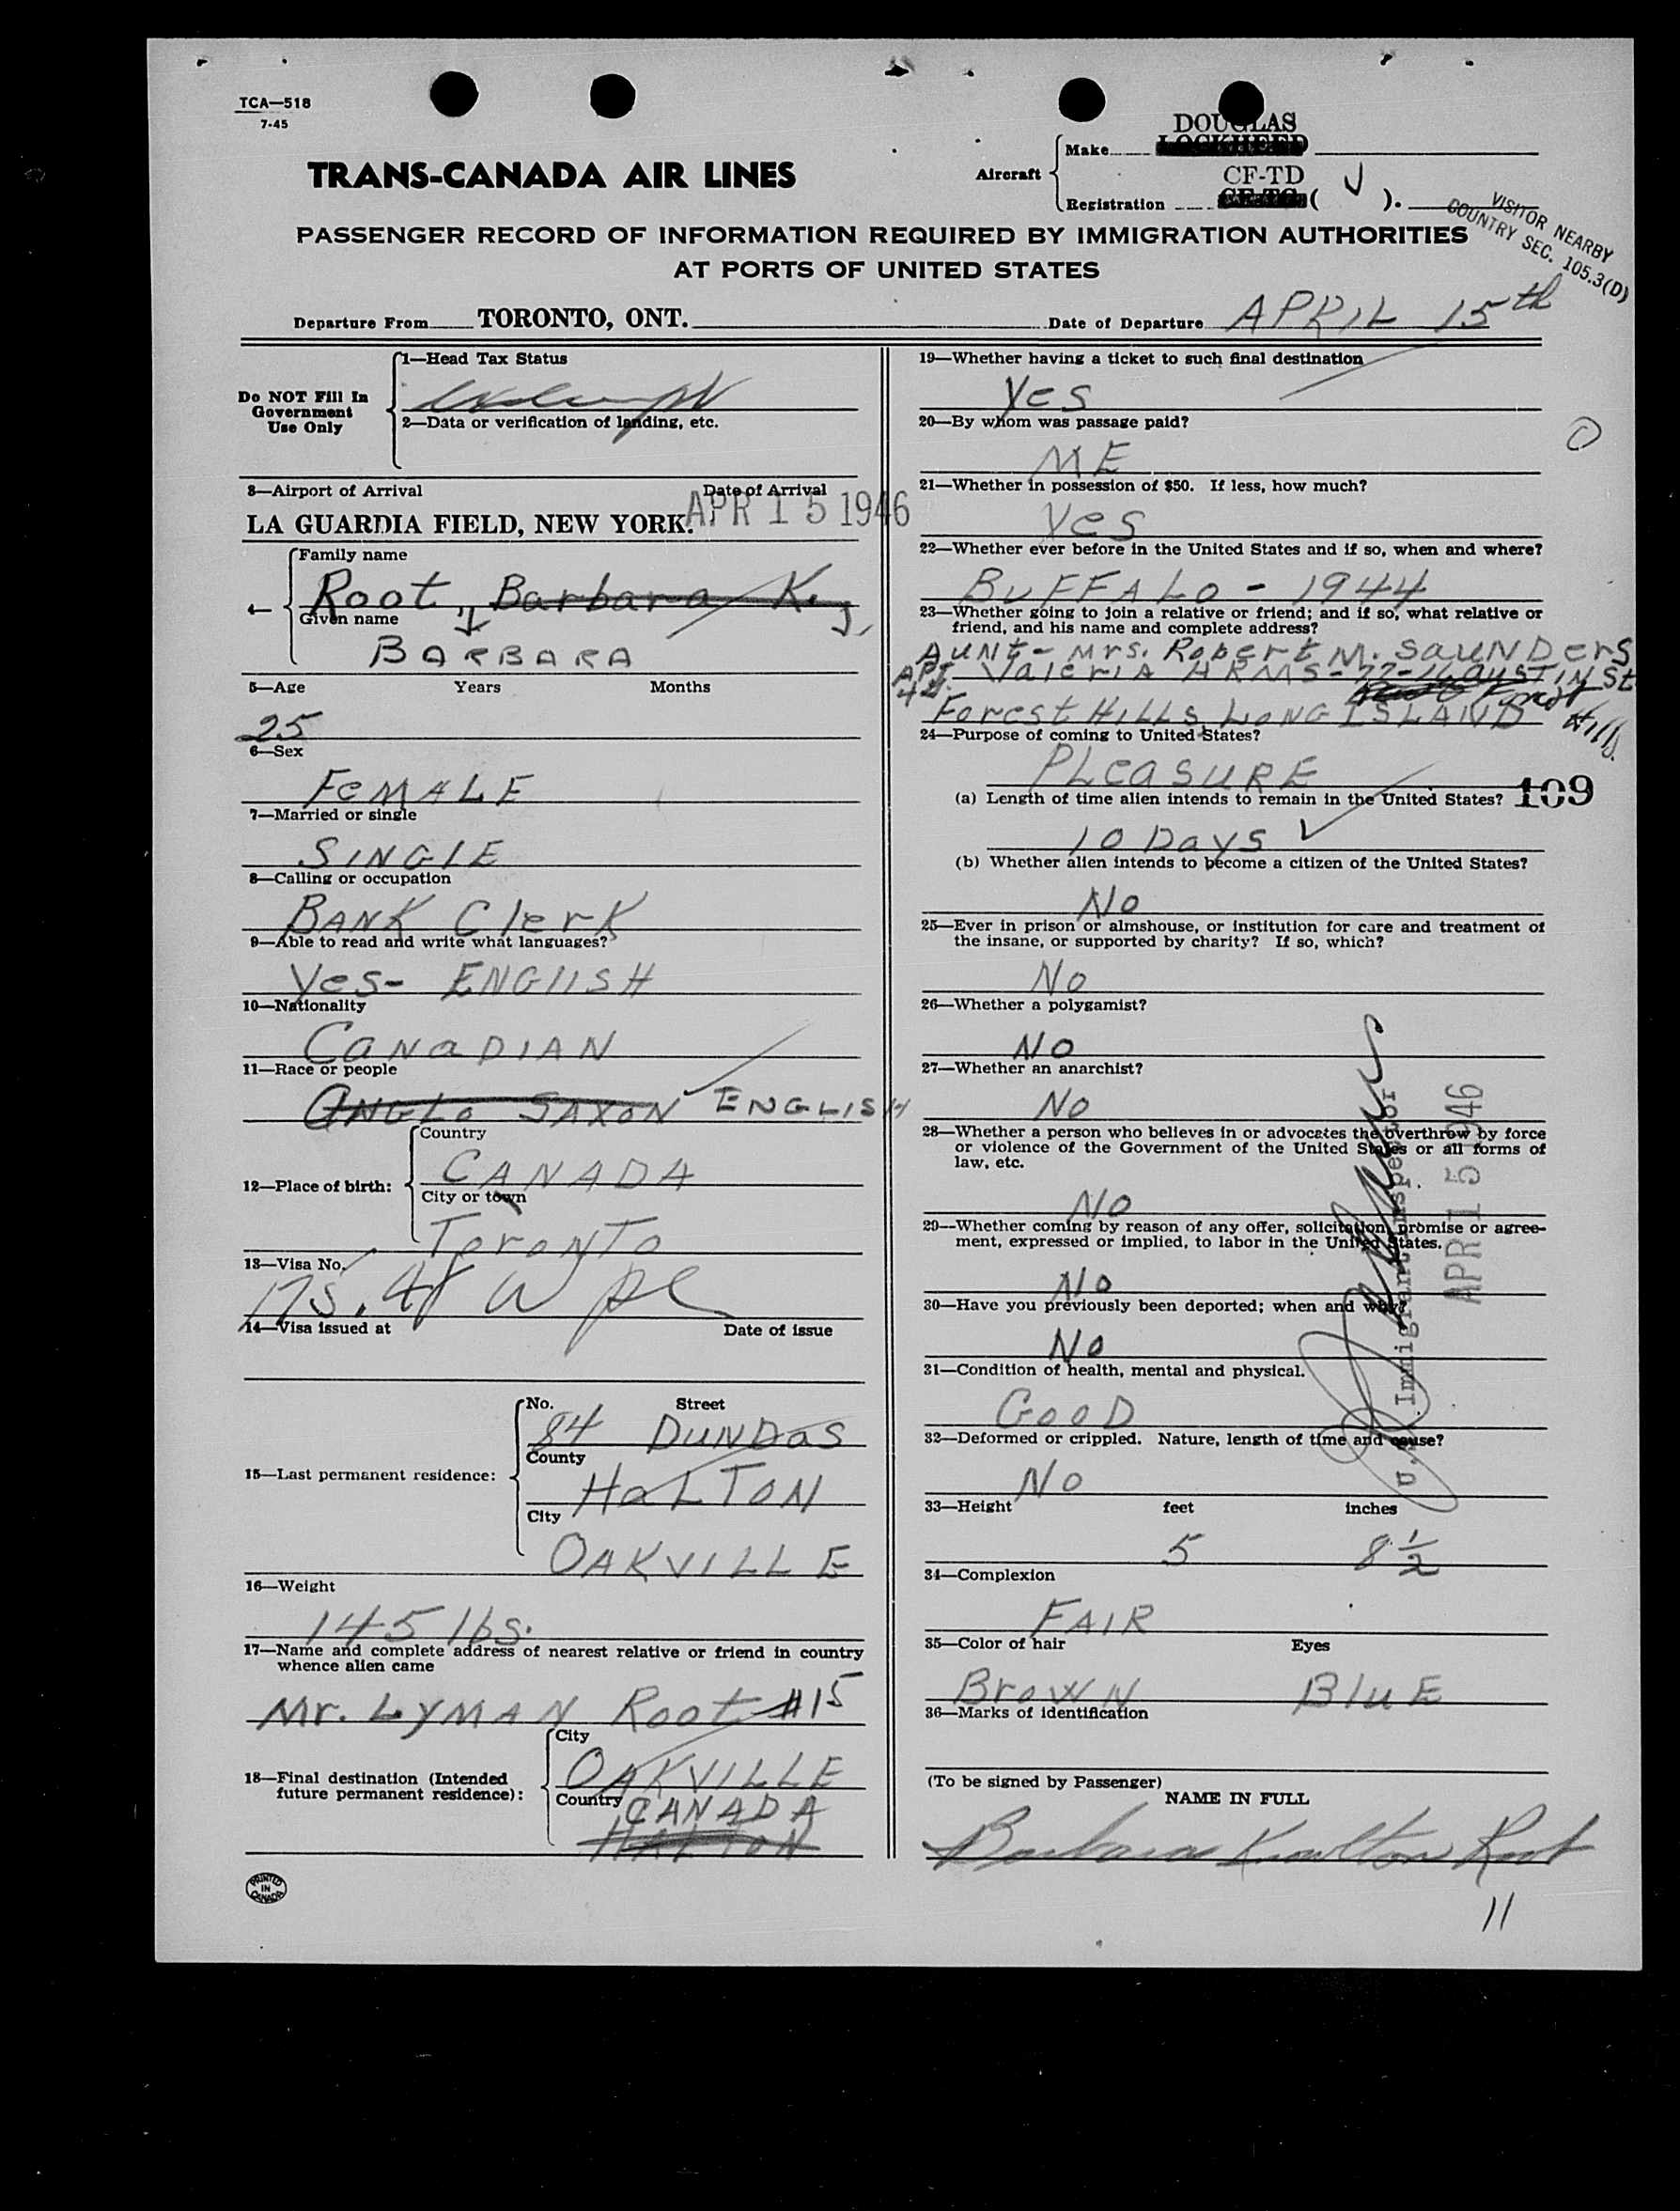 TCA—518
7-45
DOUGLAS
Make
LOCKHEED
TRANS-CANADA AIR LINES
Aircraft
CF-TD
Registration CF-TC ( J ).
VISITOR NEARBY
COUNTRY SEC. 105.3(D)
PASSENGER RECORD OF INFORMATION REQUIRED BY IMMIGRATION AUTHORITIES
AT PORTS OF UNITED STATES
Departure From TORONTO, ONT. Date of Departure APRIL 15th
Do NOT Fill In
Government
Use Only
1—Head Tax Status
2—Data or verification of landing, etc.
3—Airport of Arrival Date of Arrival
LA GUARDIA FIELD, NEW YORK. APR 15 1946
4—
Family name
Root, Barbara K.
Given name
BARBARA
5—Age Years Months
25
6—Sex
FeMALE
7—Married or single
SINGlE
8—Calling or occupation
BANK Clerk
9—Able to read and write what languages?
Yes- ENGlISH
10—Nationality
CaNaDIAN
11—Race or people
ANGLo SAXON ENGLISH
12—Place of birth:
Country
CANADA
City or town
ToroNTo
13—Visa No.
175.
14—Visa issued at Date of issue
15—Last permanent residence:
No. Street
84 DUNDaS
County
HaLTON
City
OAKVILLE
16—Weight
145 lbs.
17—Name and complete address of nearest relative or friend in country
whence alien came
Mr. LYMAN Root #15
18—Final destination (Intended
future permanent residence):
City
OAKVILLE
Country
CANADA
HALTON
PRINTED
IN
CANADA
19—Whether having a ticket to such final destination
Yes
20—By whom was passage paid?
ME
21—Whether in possession of $50. If less, how much?
Yes
22—Whether ever before in the United States and if so, when and where?
BUFFALO - 1944
23—Whether going to join a relative or friend; and if so, what relative or
friend, and his name and complete address?
AUNt- Mrs. Robert M. SaUNDerS
APT. Valeria ARMS-77-16 AUSTIN St
Forest HILLS, LONG ISLAND Forest Hills.
24—Purpose of coming to United States?
PLeaSURE
(a) Length of time alien intends to remain in the United States? 109
10 DaYS
(b) Whether alien intends to become a citizen of the United States?
No
25—Ever in prison or almshouse, or institution for care and treatment of
the insane, or supported by charity? If so, which?
No
26—Whether a polygamist?
NO
27—Whether an anarchist?
No
28—Whether a person who believes in or advocates the overthrow by force
or violence of the Government of the United States or all forms of
law, etc.
NO
29—Whether coming by reason of any offer, solicitation, promise or agree-
ment, expressed or implied, to labor in the United States.
No
30—Have you previously been deported; when and why?
No
31—Condition of health, mental and physical.
GooD
32—Deformed or crippled. Nature, length of time and cause?
No
33—Height feet inches
5 8 1/2
34—Complexion
FAIR
35—Color of hair Eyes
BroWN BluE
36—Marks of identification
U.S. Immigrant Inspector
APR 15 1946
(To be signed by Passenger)
NAME IN FULL
Barbara Root
11